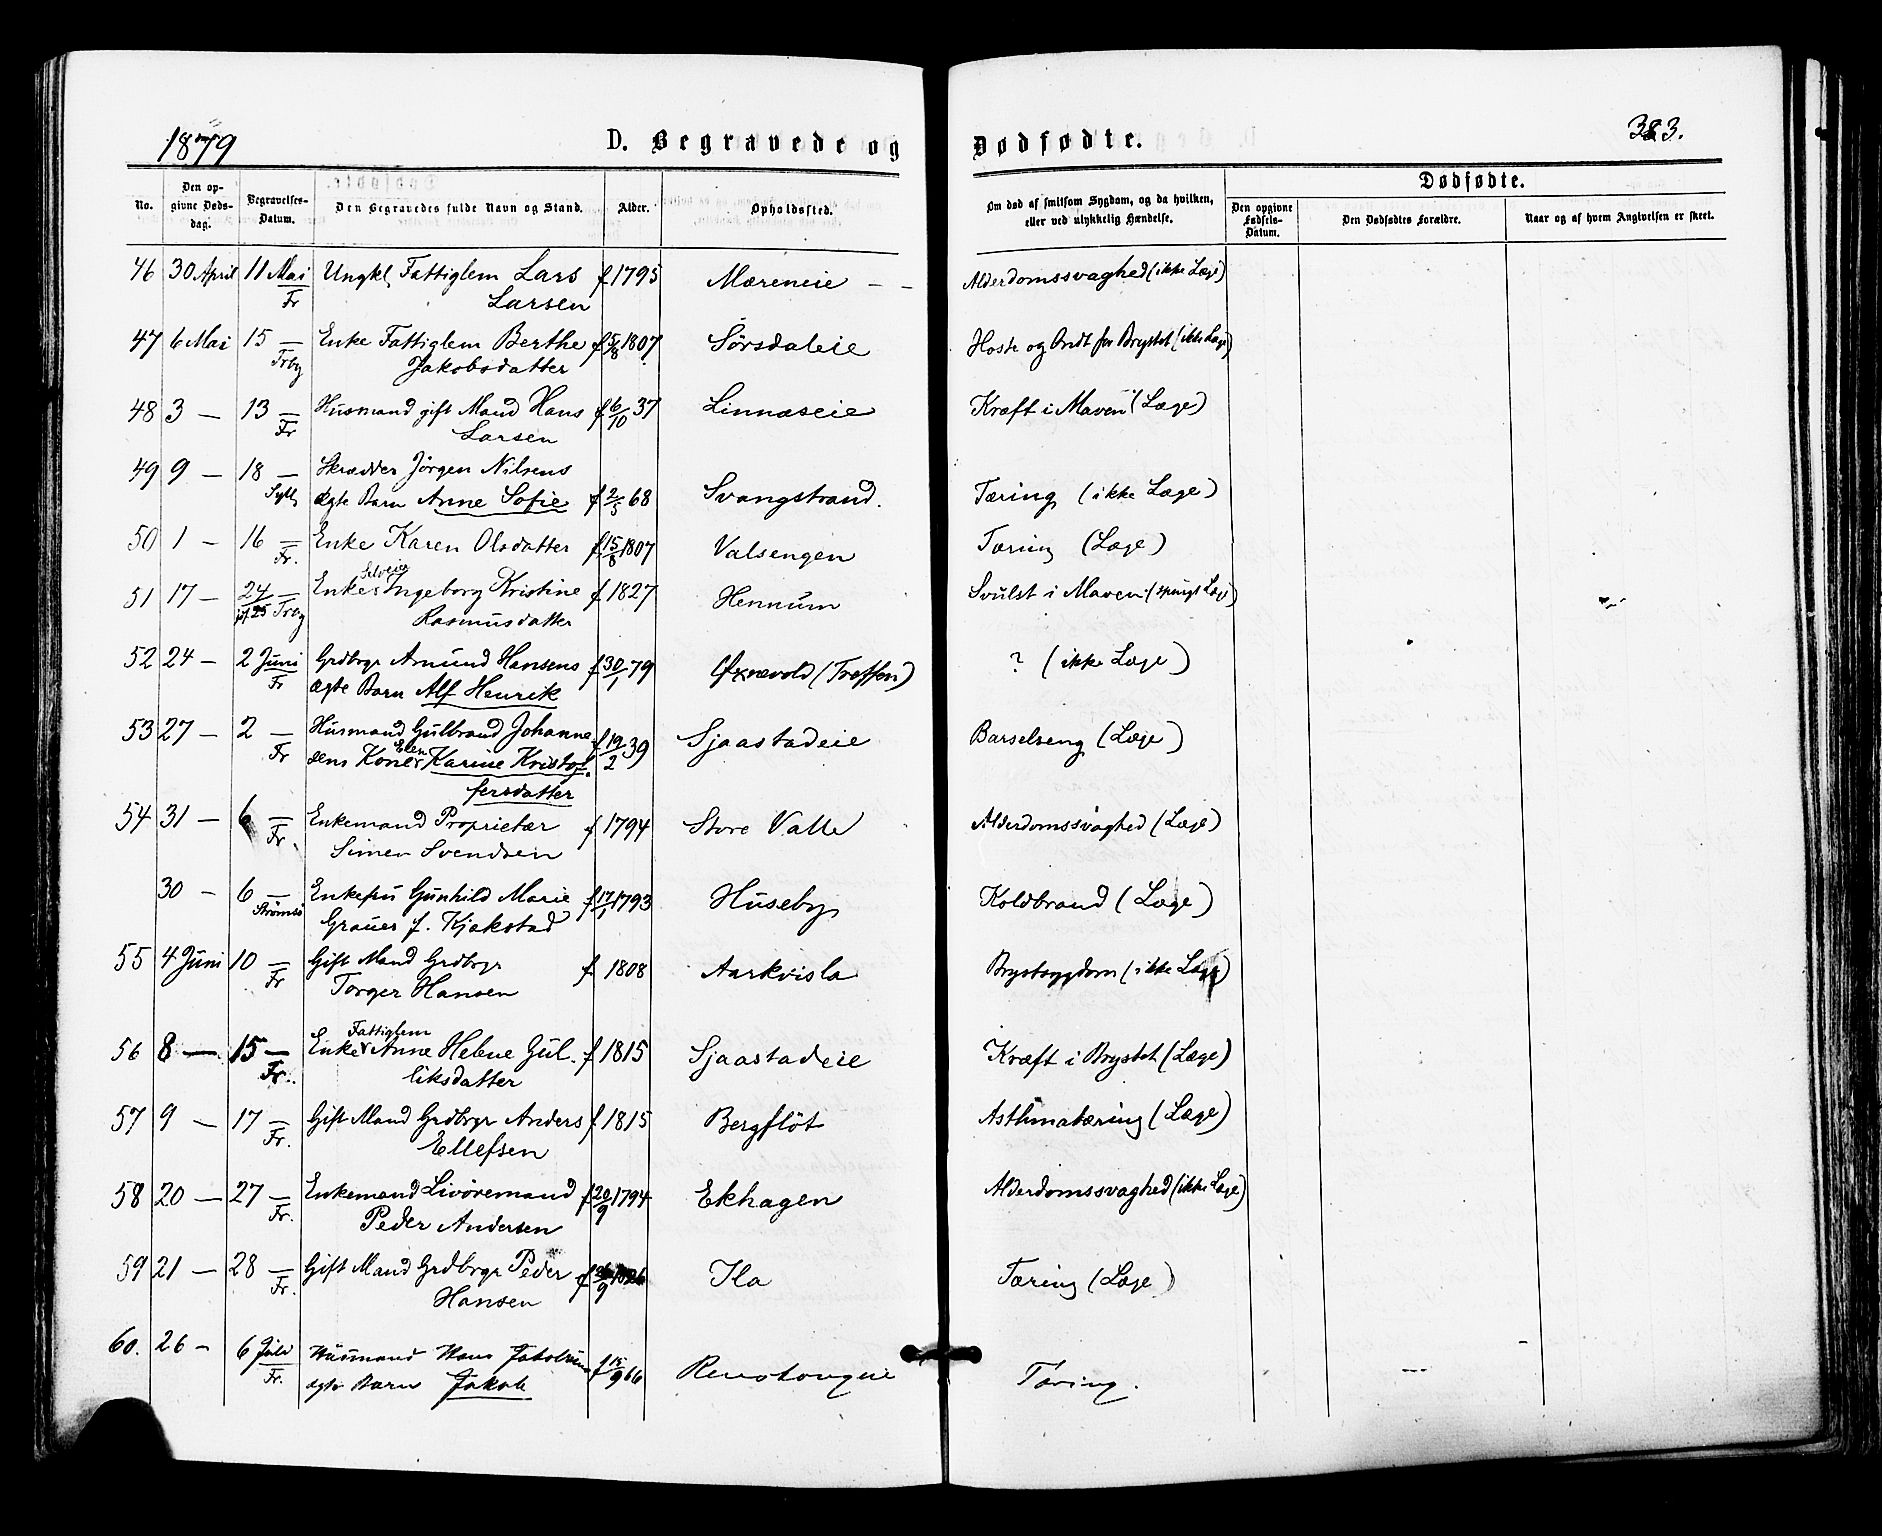 1879
D. Begravede og Dødfødte.
383.
No.
Den op-
givne Døds-
dag.
Begravelses-
Datum.
Den Begravedes fulde Navn og Stand.
Alder.
Opholdssted.
Om død af smitsom Sygdom, og da hvilken,
eller ved ulykkelig Hændelse.
Dødfødte.
Den opgivne
Fødsels-
Datum.
Den Dødfødtes Forældre.
Naar og af hvem Angivelsen er skeet.
46 30 April 11 Mai Ungkl Fattiglem Lars f 1795 Mæreneie - - Alderdomssvaghed (ikke Læge)
Fr Larsen
47 6 Mai 15 — Enke Fattiglem Berthe f 5/8 1807 Sørsdaleie Hoste og Ondt for Brystet (ikke Læge)
Frby Jakobsdatter
48 3 — 13 — Husmand gift Mand Hans f 6/10 37 Linnæseie Kræft i Maven (Læge)
Fr Larsen
49 9 — 18 — Skrædder Jörgen Nilsens
Syll ægte Barn Anne Sofie f 2/5 68 Svangstrand. Tæring (ikke Læge)
50 1 — 16 — Enke Karen Olsdatter f 15/8 1807 Valsengen Tæring (Læge)
Fr.
Selveier
51 17 — 24 — Enke Ingeborg Kristine f 1827 Hennum Svulst i Maven (spurgt Læge)
jf. 25 Frby Rasmusdatter
52 24 — 2 Juni Grdbrgr Amund Hansens f 30/1 79 Øxnevold (Traffen) ? (ikke Læge)
Fr ægte Barn Alf Henrik
53 27 — 2 — Husmand Gulbrand Johanne-
Fr sens Kone Elen Karine Kristof- f 19/2 39 Sjaastadeie Barselseng (Læge)
fersdatter
54 31 — 6 — Enkemand Proprietær f 1794 Store Valle Alderdomssvaghed (Læge)
Fr. Simen Svendsen
30 - 6 — Enkefru Gunhild Marie f 17/1 1793 Huseby Koldbrand (Læge)
Strömsö Grauer f. Kjekstad
55 4 Juni 10 — Gift Mand Grdbrgr f. 1808 Aarkvisla Brystsygdom (ikke Læge)
Fr Torger Hansen
Fattiglem
56 8 — 15 — Enke Anne Helene Gul- f 1815 Sjaastadeie Kræft i Brystet (Læge)
Fr. liksdatter
57 9 — 17 — Gift Mand Grdbrgr Anders f 1815 Bergflöt Asthmatæring (Læge)
Fr. Ellefsen
58 20 — 27 — Enkemand Livöremand f 20/9 1794 Ekhagen Alderdomssvaghed (ikke Læge)
Fr. Peder Andersen
59 21 — 28 — Gift Mand Grdbrgr Peder f Ila Tæring (Læge)
Fr. Hansen
60. 26 - 6 Juli Husmand Hans Jakobsens f 15/9 66 Renskougeie Tæring.
Fr. ægte Barn Jakob